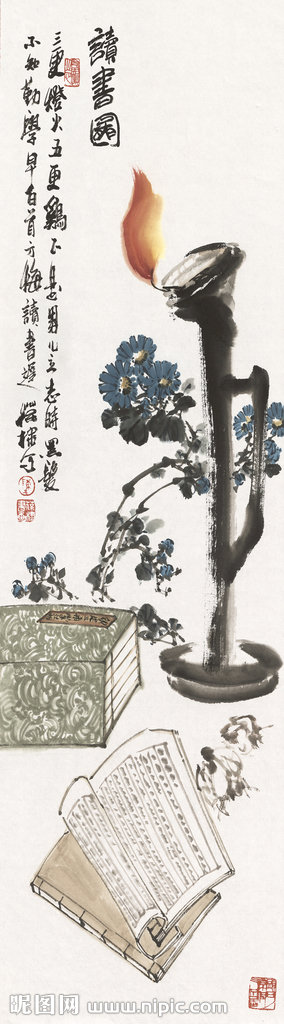 讀書圖
三更燈火五更鷄正是男儿立志時黑髮
不知勤學早白首方悔讀書遲
昵图网 www.nipic.com